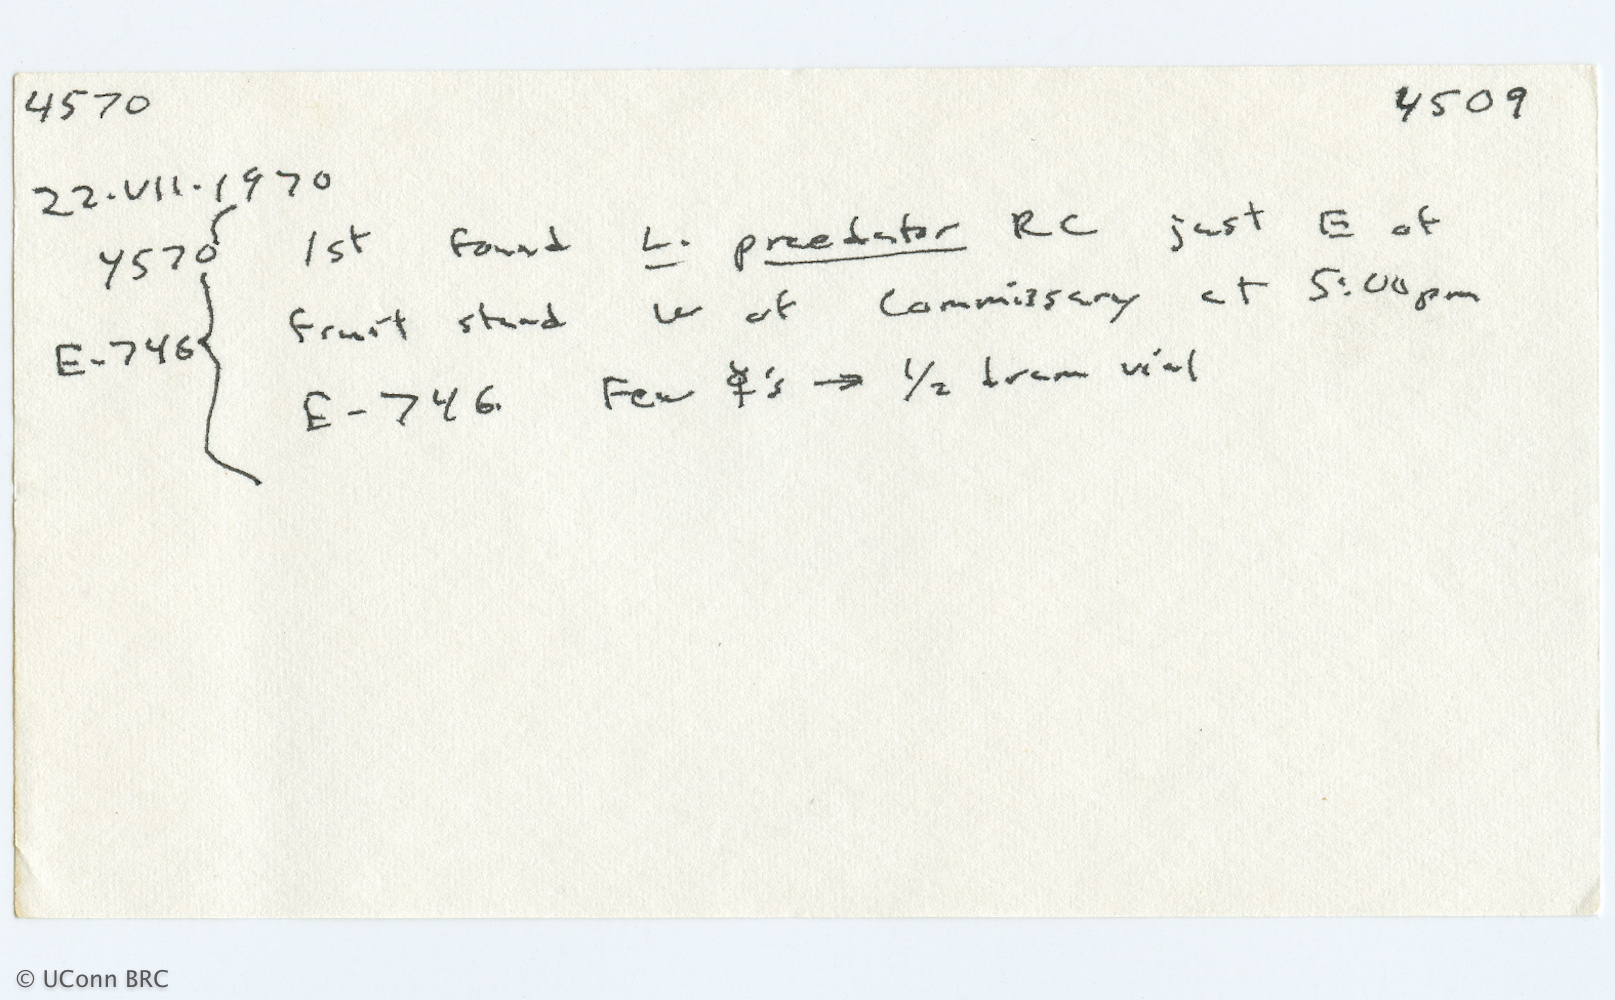 4570 4509
22.VII.1970
4570 1st found L. praedator RC just E of
fruit stand W of Commissary at 5:00pm
E-746
E-746. Few ☿'s → 1/2 dram vial
© UConn BRC